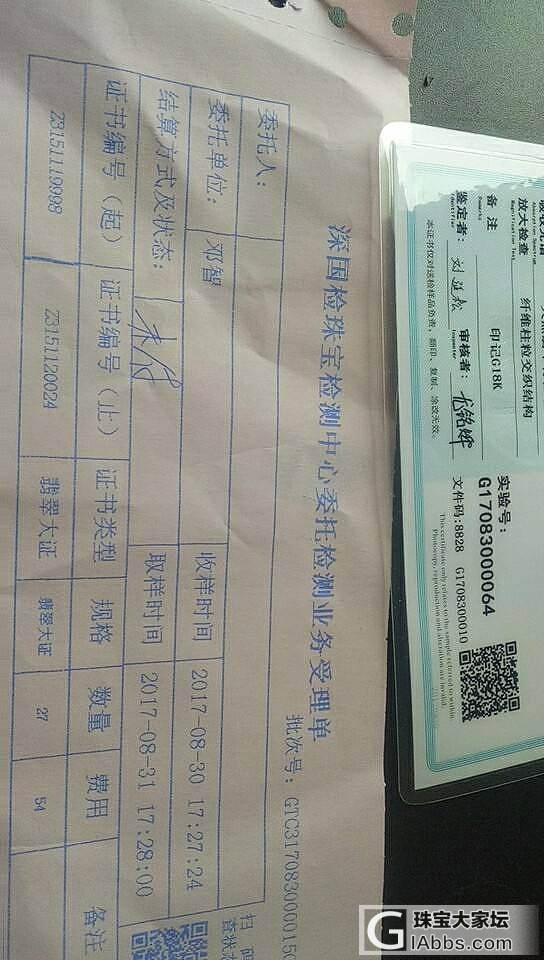 深国检珠宝检测中心委托检测业务受理单
批次号: GTC3170830000150
委托人:
委托单位: 邓智
收样时间 2017-08-30 17:27:24
结算方式及状态: 未付
取样时间 2017-08-31 17:28:00
证书编号(起) 证书编号(止) 证书类型 规格 数量 费用 备注
Z3151119998 Z3151120024 翡翠大证 翡翠大证 27 54
扫码
放大检查
Magnification Test
纤维柱粒交织结构
备注
Remarks
印记G18K
鉴定者:
Identifier
审核者:
Inspector
本证书仅对送检样品负责,翻印、复制、涂改无效。
实验号:
G17083000064
文件码:8828 G1708300010
This certificate only relates to the sample referred to within.
Photocopy, reproduction and alteration are invalid.
珠宝大家坛
GIAbbs.com